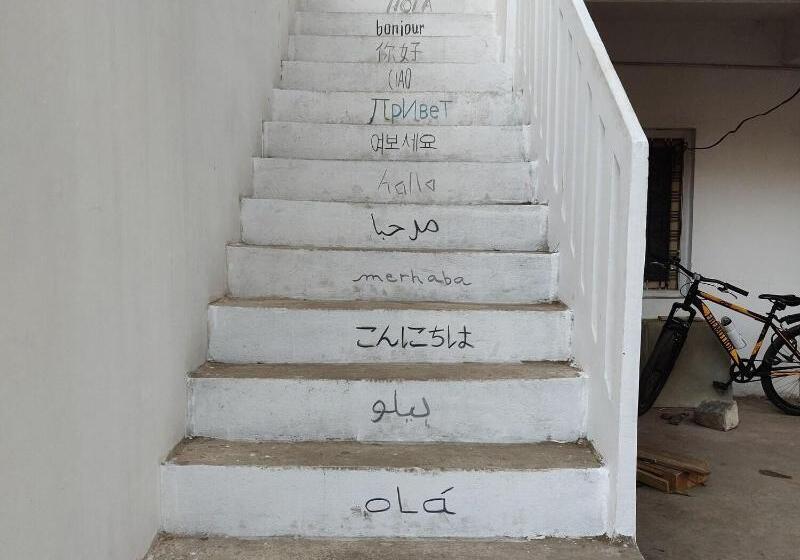 HOLA
bonjour
你好
CIAO
ПрИвеТ
여보세요
hallo
مرحبا
merhaba
こんにちは
ہیلو
oLá